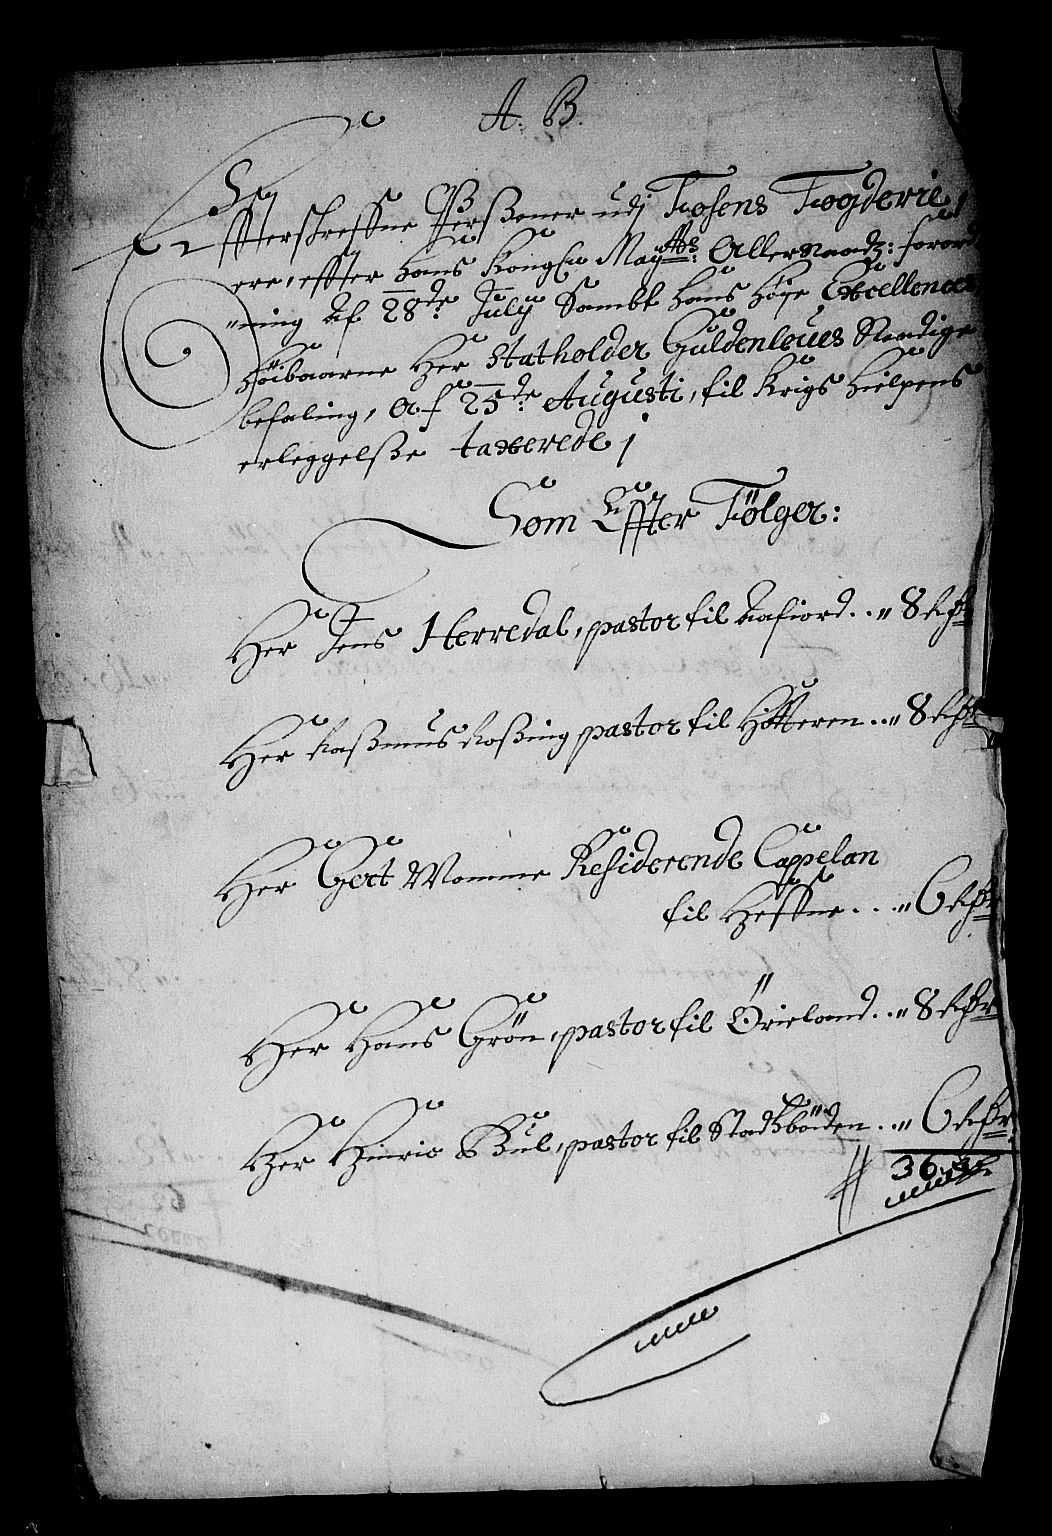 A. B.
Effterskreffne Perßoner udj Fosens Fogderie,
ere, effter Hans Kongl: May:tts: Allernaadg: forord-
"ning af 28de July Sambt Hans Høye Excellences
höibaarne Her Statholder Güldenleues Naadige
befaling, af 25de Augusti, til Krigs Hielpens
erleggelsße taxerede /
Som Effter Fölger:
Her Jens Herredal, pastor til Aafiord.. „ 8 Rdr
Her Raßmus Roßing pastor til Hötteren.. „ 8 Rdr
Her Gert Momme Residerende Cappelan
til Heffne... „ 6 Rdr
Her Hans Grön, pastor til Örieland.. „ 8 Rdr
Her Hinric Bul, pastor til Stadtzböiden.. „ 6 Rdr
36